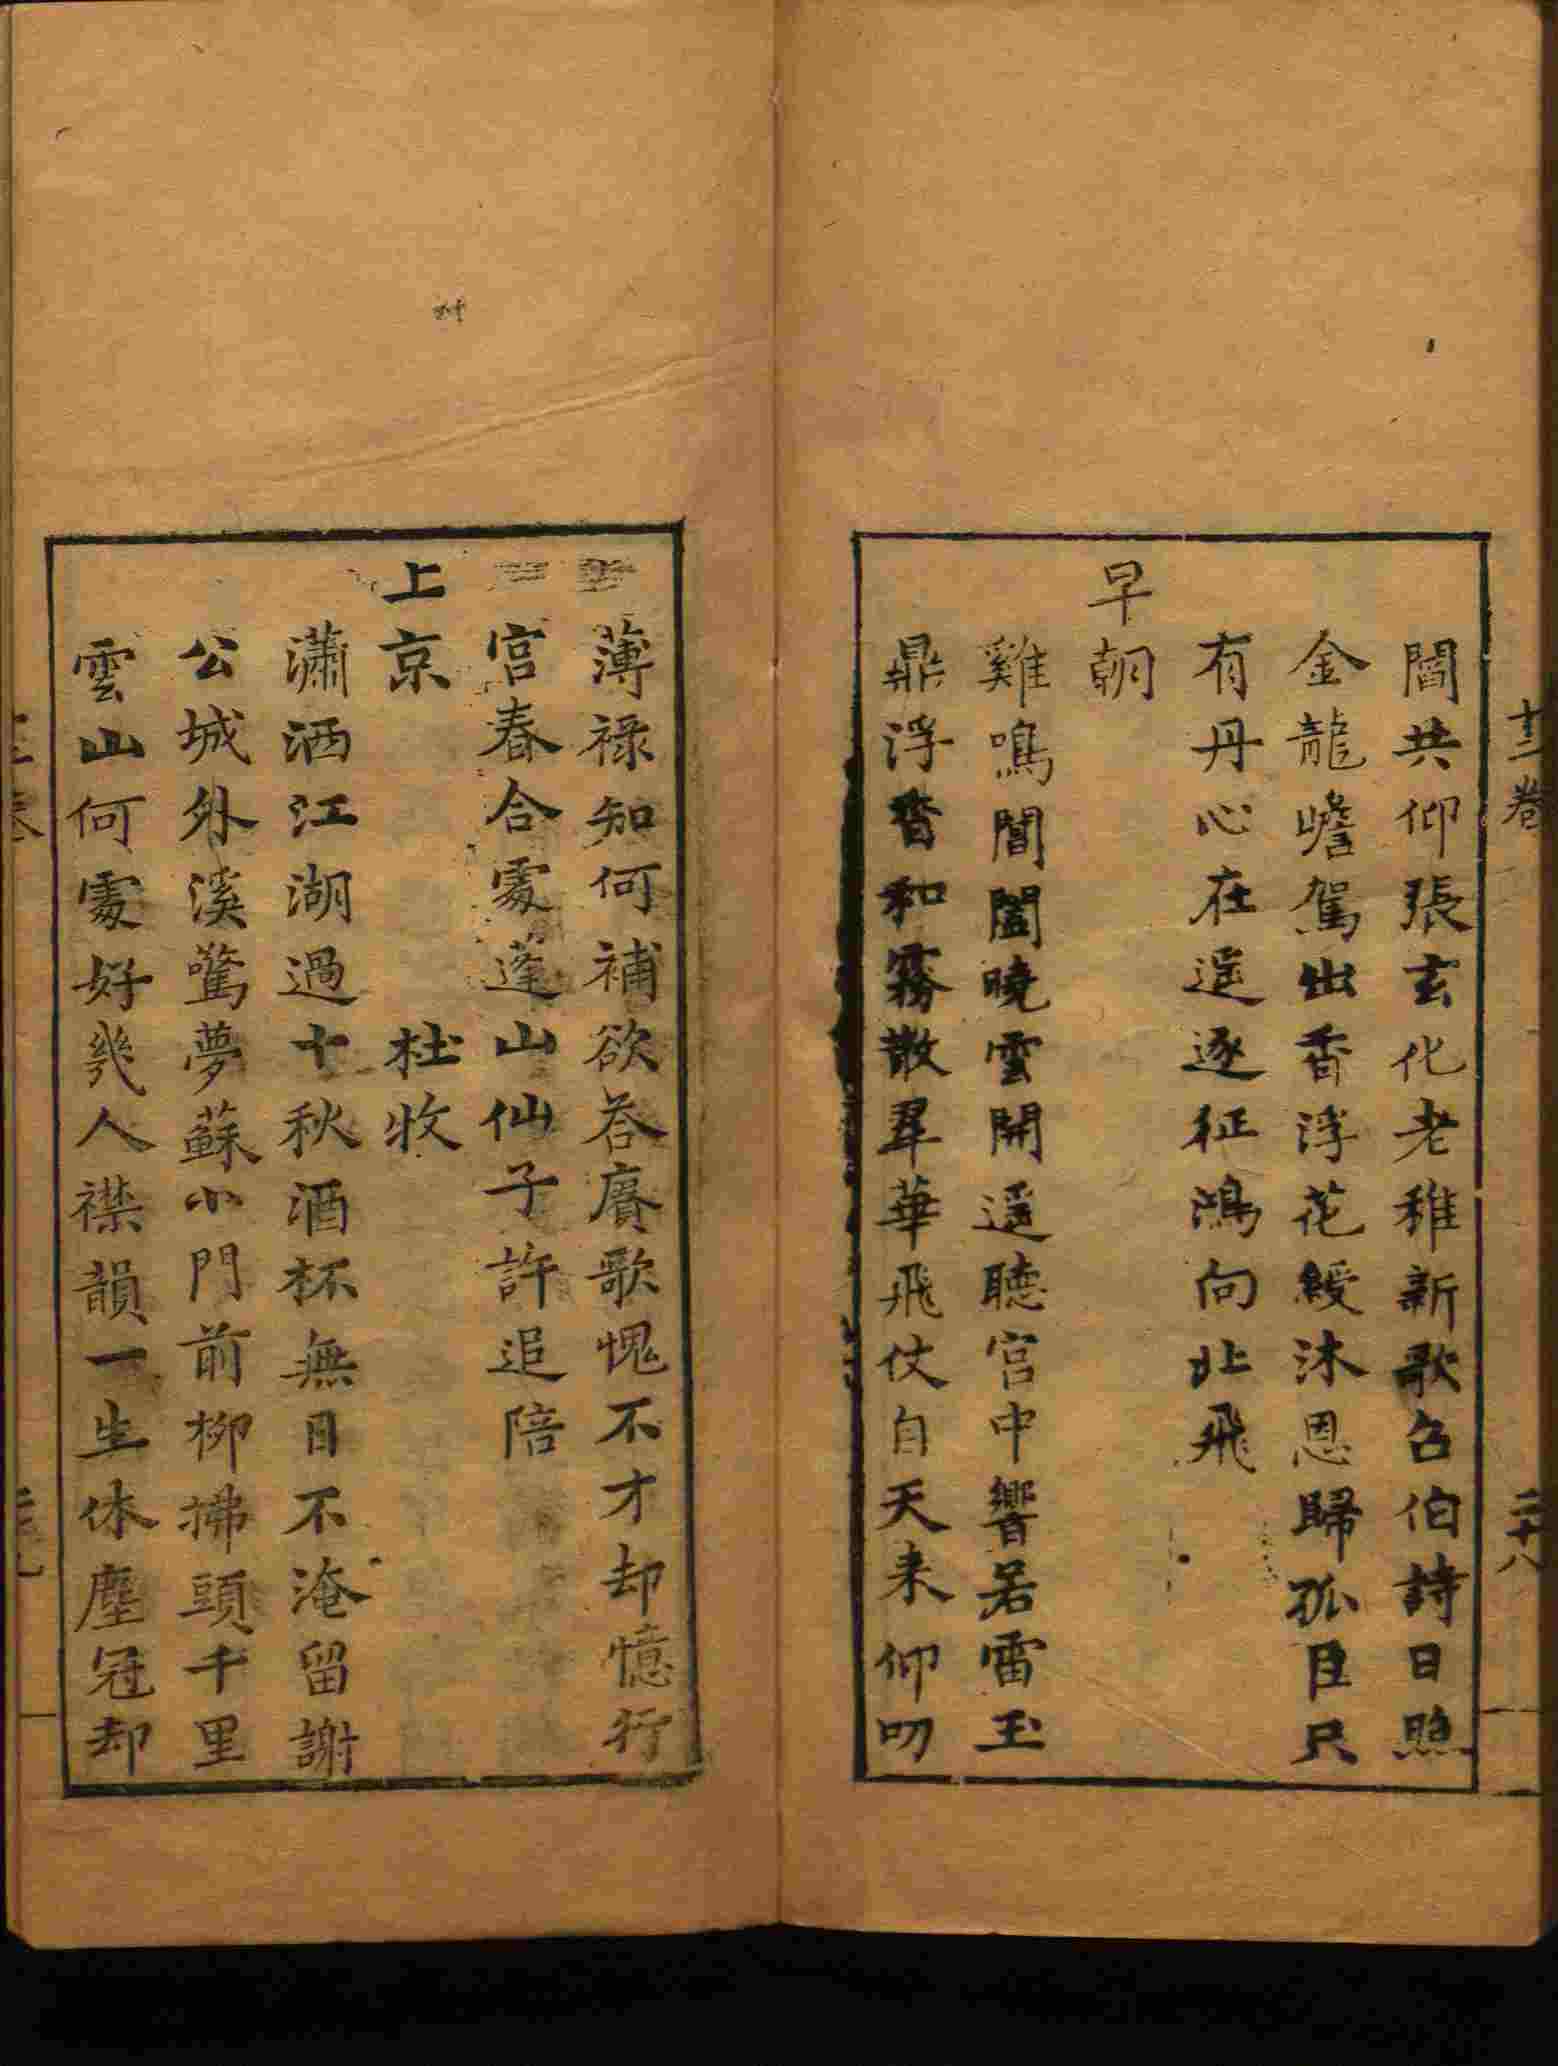 十二卷
二十八
閶共仰張玄化老稚新歌召伯詩日照
金龍幨駕出香浮花綬沐恩歸孤臣只
有丹心在遥逐征鴻向北飛
早朝
雞鳴閶闔曉雲開遥聽宫中響若雷玉
鼎浮香和霧散羣華飛仗自天来仰叨
薄禄知何補欲荅賡歌愧不才却憶行
宫春合處蓬山仙子許追陪
上京 杜牧
瀟洒江湖過十秋酒杯無日不淹留謝
公城外溪驚夢蘇小門前柳拂頭千里
雲山何處好幾人襟韻一生休塵冠却